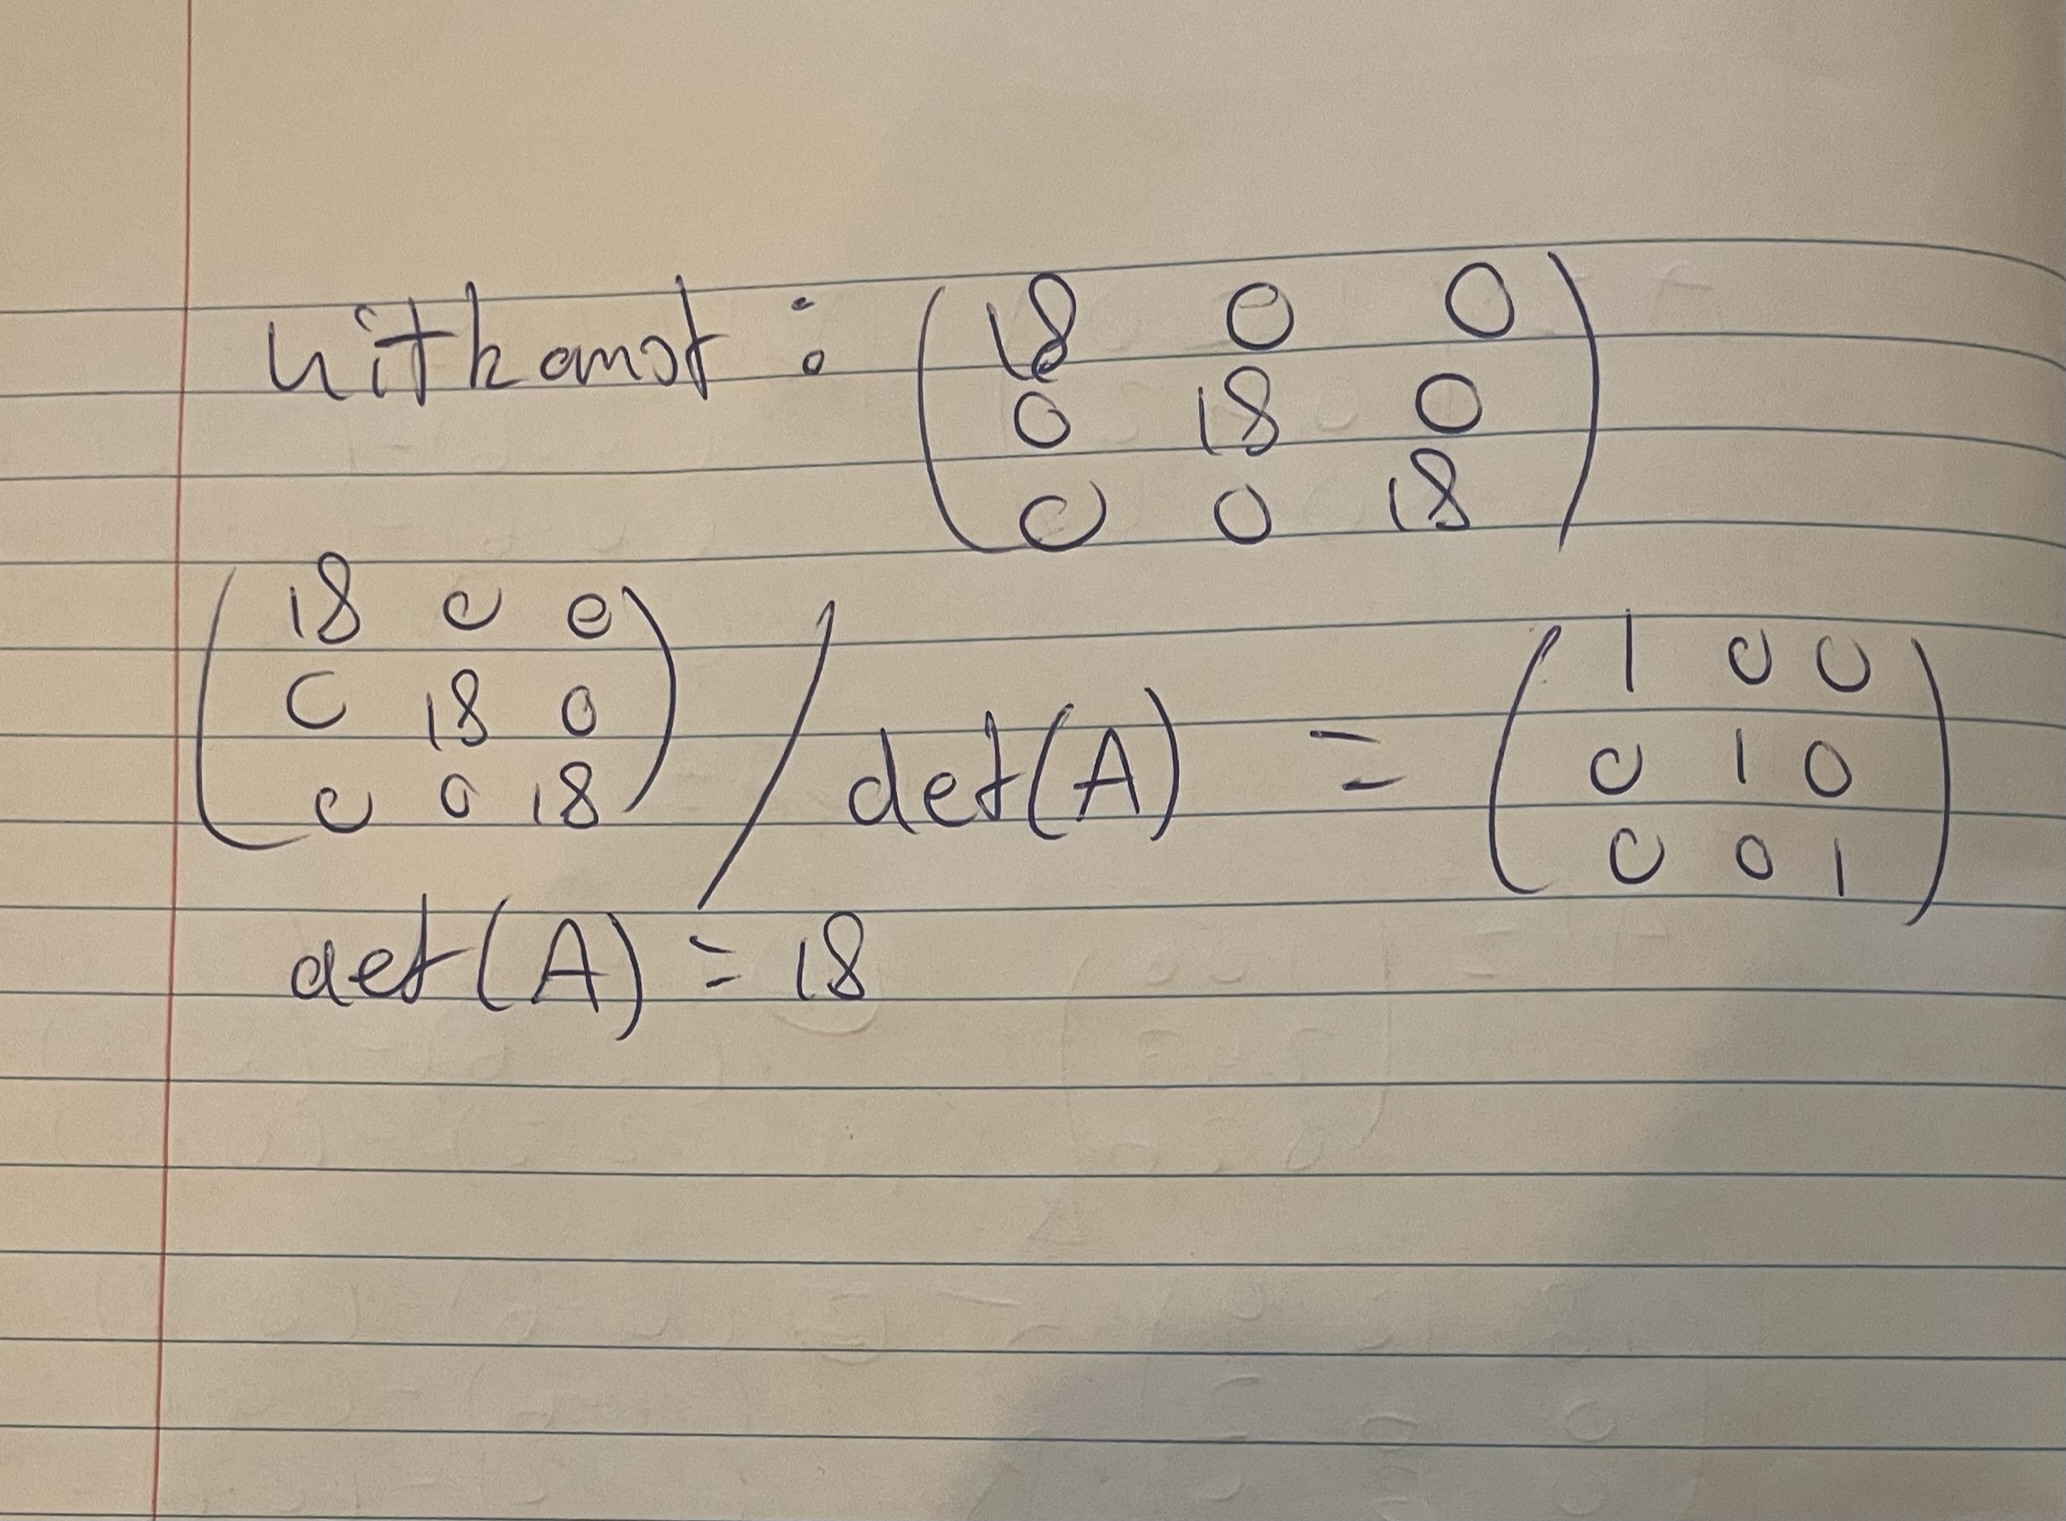 uitkomst : ( 18 0 0
0 18 0
0 0 18 )
( 18 0 0
0 18 0
0 0 18 ) / det(A) = ( 1 0 0
0 1 0
0 0 1 )
det(A) = 18